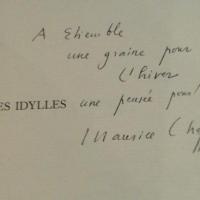 A Etiemble
une graine pour
l'hiver
ES IDYLLES une pensée pour
Maurice